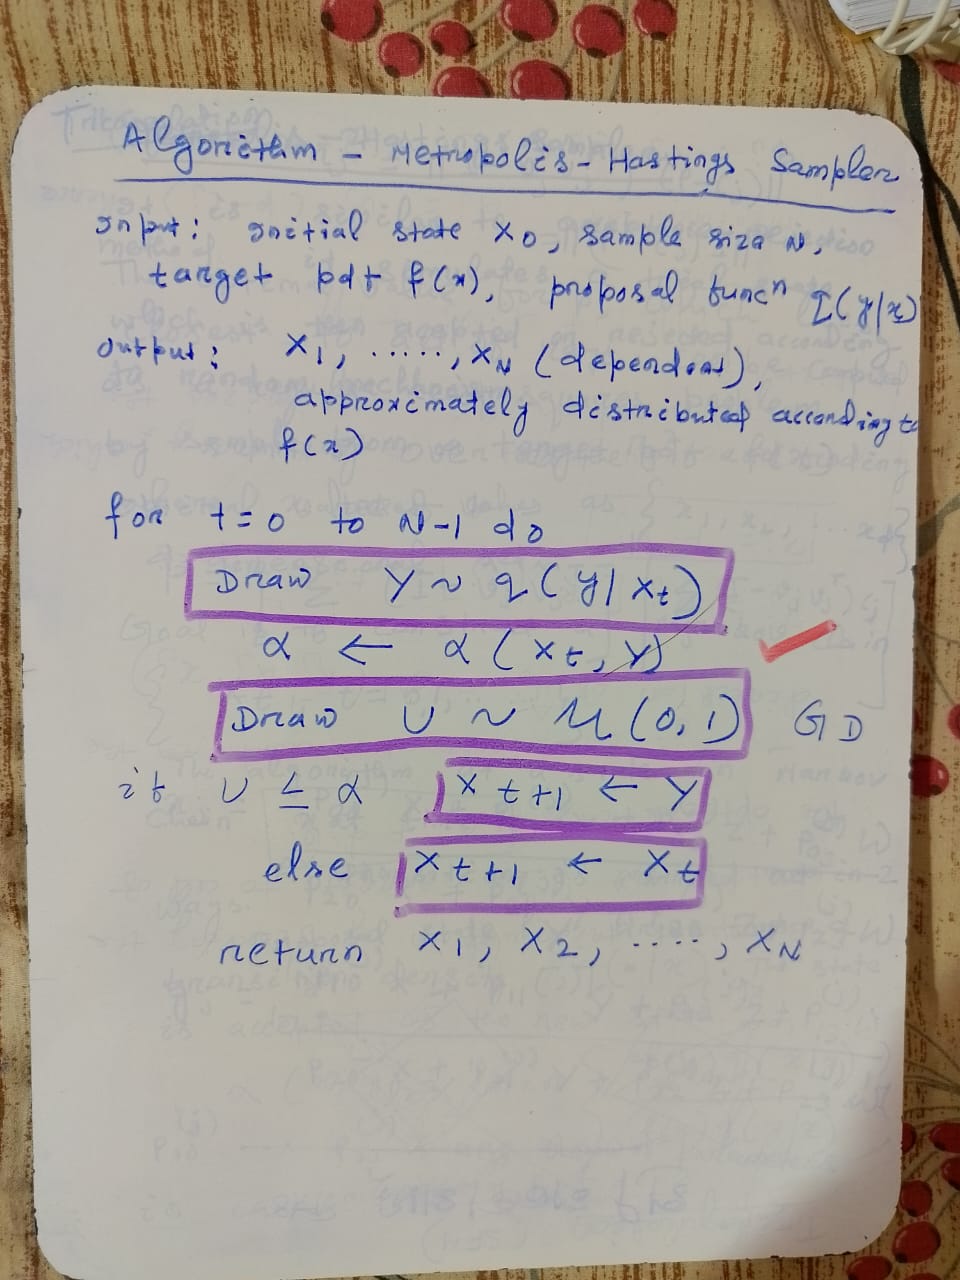 Algorithm - Metropolis-Hastings Sampler
Input: Initial state X0, sample size N,
target pdf f(x), proposal funcⁿ q(y|x)
Output: X1, ....., XN (dependent),
approximately distributed according to
f(x)
for t=0 to N-1 do
Draw Y ~ q(y|Xt)
α ← α(Xt, Y)
Draw U ~ U(0,1) GD
if U ≤ α Xt+1 ← Y
else Xt+1 ← Xt
return X1, X2, ...., XN